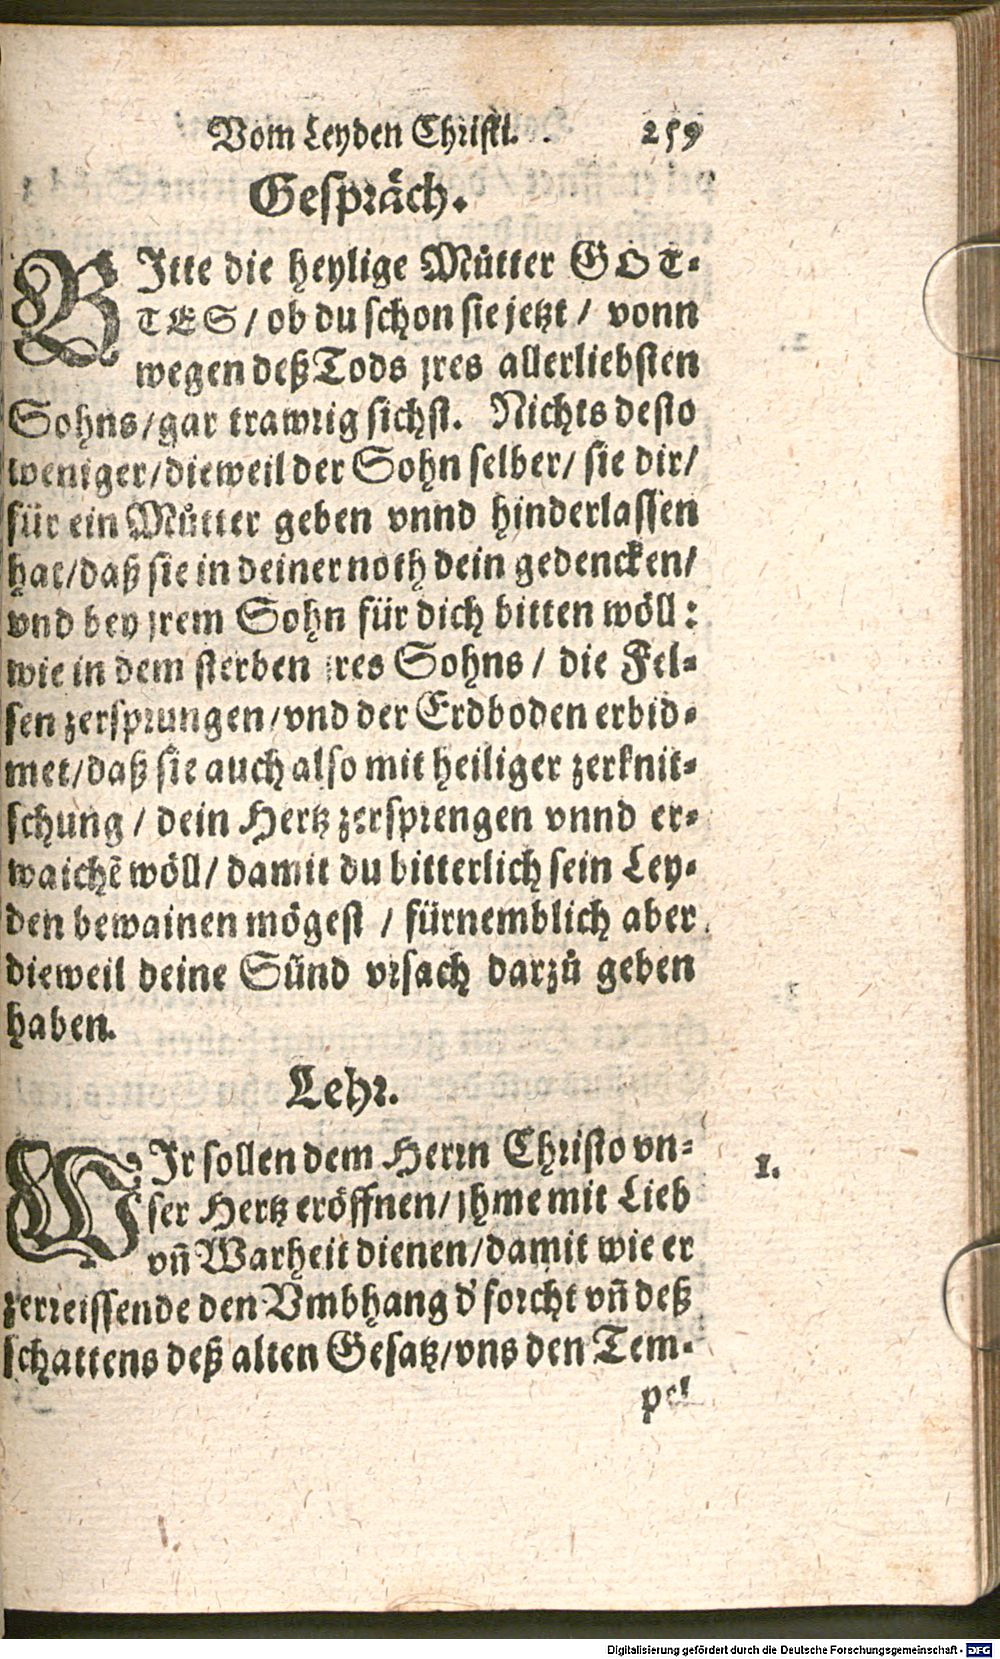 Vom Leyden Christi. 259
Gespräch.
BItte die heylige Můtter GOT-
TES / ob du schon sie jetzt / vonn
wegen deß Tods jres allerliebsten
Sohns / gar trawrig sichst. Nichts desto
weniger / dieweil der Sohn selber / sie dir /
für ein Můtter geben vnnd hinderlassen
hat / daß sie in deiner noth dein gedencken /
vnd bey jrem Sohn für dich bitten wöll:
wie in dem sterben jres Sohns / die Fel-
sen zersprungen / vnd der Erdboden erbid-
met / daß sie auch also mit heiliger zerknit-
schung / dein Hertz zersprengen vnnd er-
waichẽ wöll / damit du bitterlich sein Ley-
den bewainen mögest / fürnemblich aber
dieweil deine Sünd vrsach darzů geben
haben.
Lehr.
WIr sollen dem Herrn Christo vn- 1.
ser Hertz eröffnen / jhme mit Lieb
vñ Warheit dienen / damit wie er
zerreissende den Vmbhang d' forcht vñ deß
schattens deß alten Gesatz / vns den Tem-
pel
Digitalisierung gefördert durch die Deutsche Forschungsgemeinschaft - DFG